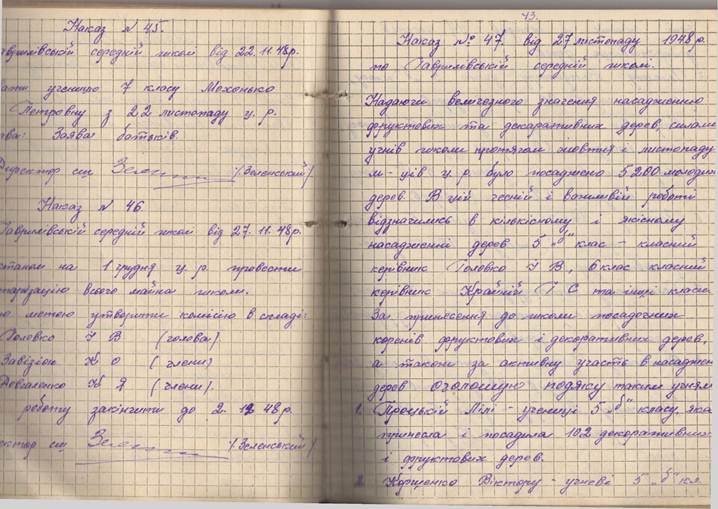 Наказ № 45.
середній школі від 22.11.48р.
ученицю 7 класу Мохонько
Петровну з 22 листопаду ц. р.
Заява батьків.
Директор сш /Зеленський/
Наказ № 46
Гаврилівській середній школі від 27.11.48р.
станом на 1 грудня ц. р. провести
всього майна школи.
метою утворити комісію в складі:
Головко І В (голова)
Завізіон К О (члени)
К Я (члени).
роботу закінчити до 2. 12 48р.
сш /Зеленський/
43.
Наказ № 47. від 27 листопаду 1948р
по Гаврилівській середній школі.
Надаючи величезного значення насадженню
фруктових та декаративних дерев, силами
учнів школи протягом жовтня і листопаду
м-ців ц. р. було посаджено 5200 молодих
дерев. В цій чесній і важливій роботі
відзначились в кількісному і якісному
насадженні дерев 5 "б" клас - класний
керівник Головко І В, 6 клас класний
керівник Крайній І С та інші класи.
За принесення до школи посадочних
коренів фруктових і декоративних дерев,
а також за активну участь в насаджен
дерев оголошую подяку таким учням
1. Троцькій Лілі - учениці 5 "б" класу, яка
принесла і посадила 102 декоративних
і фруктових дерев.
2. Корщенко Віктору - учневі 5 "б" кл.